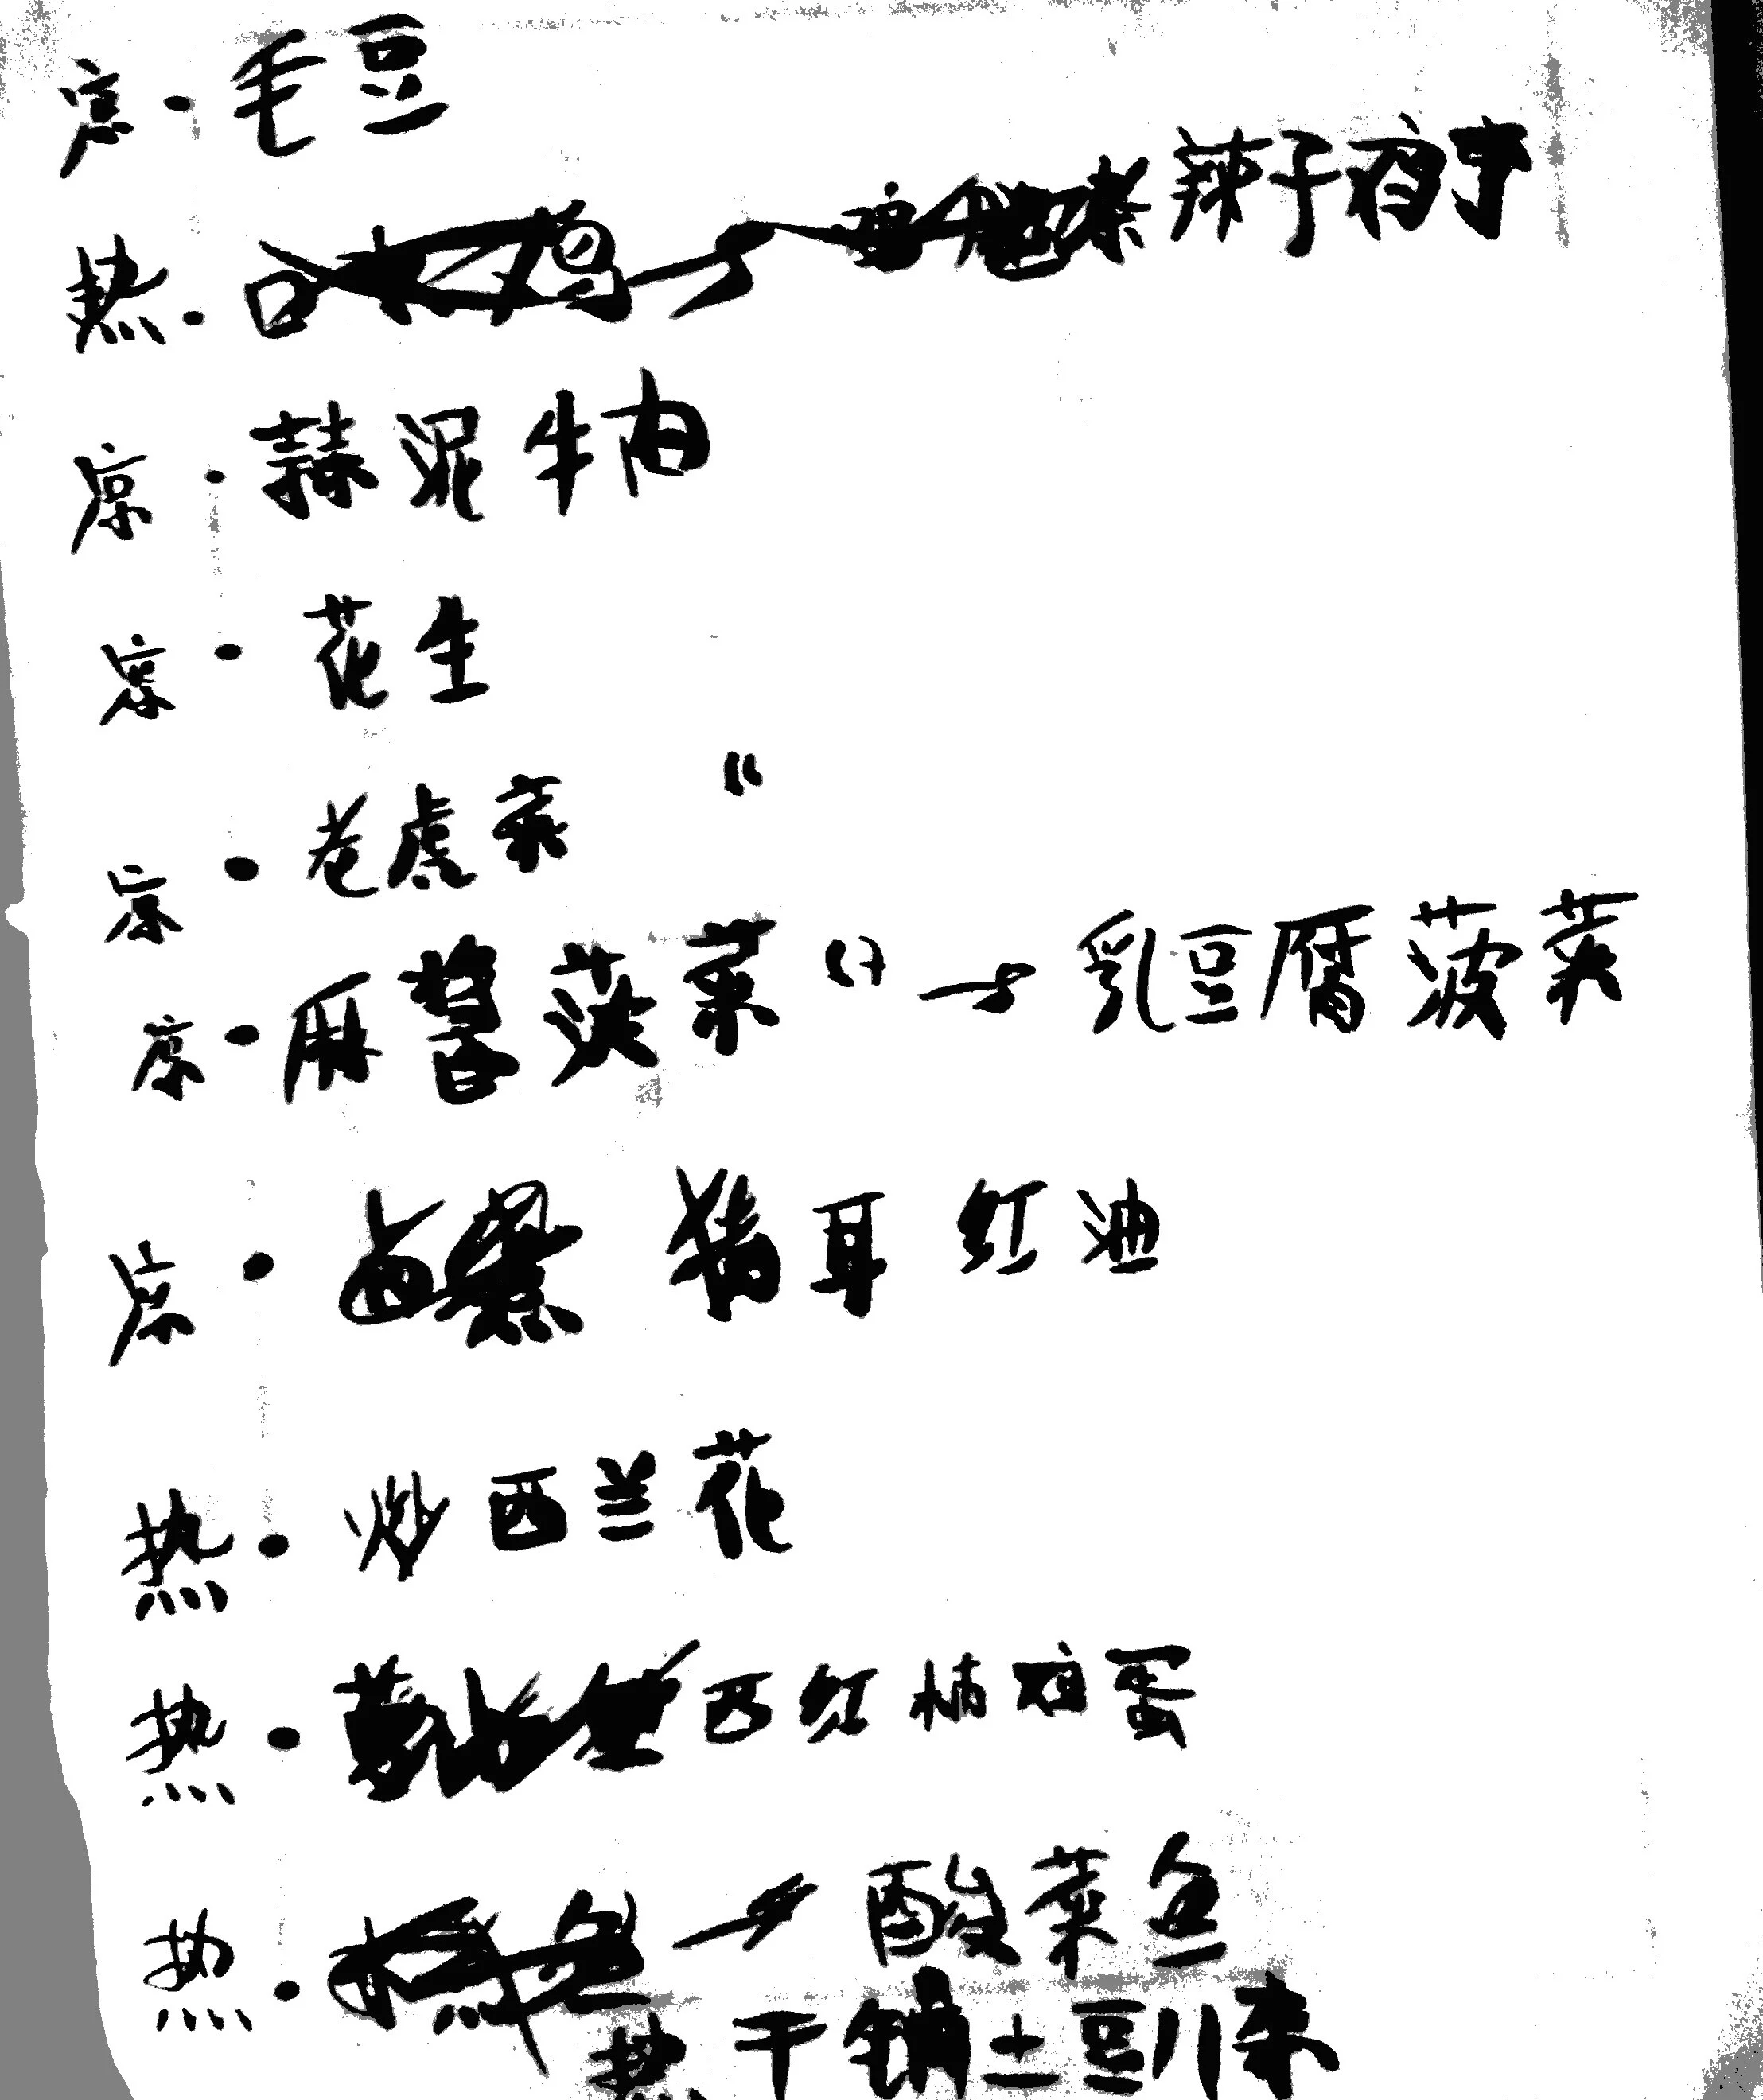 凉·毛豆
热·口水鸡→ 辣子鸡丁
凉·蒜泥牛肉
凉·花生
凉·老虎菜 “
凉·麻酱菠菜 “ → 乳豆腐菠菜
凉·卤 猪耳 红油
热·炒西兰花
热· 西红柿鸡蛋
热· 鱼→酸菜鱼
热 干锅土豆